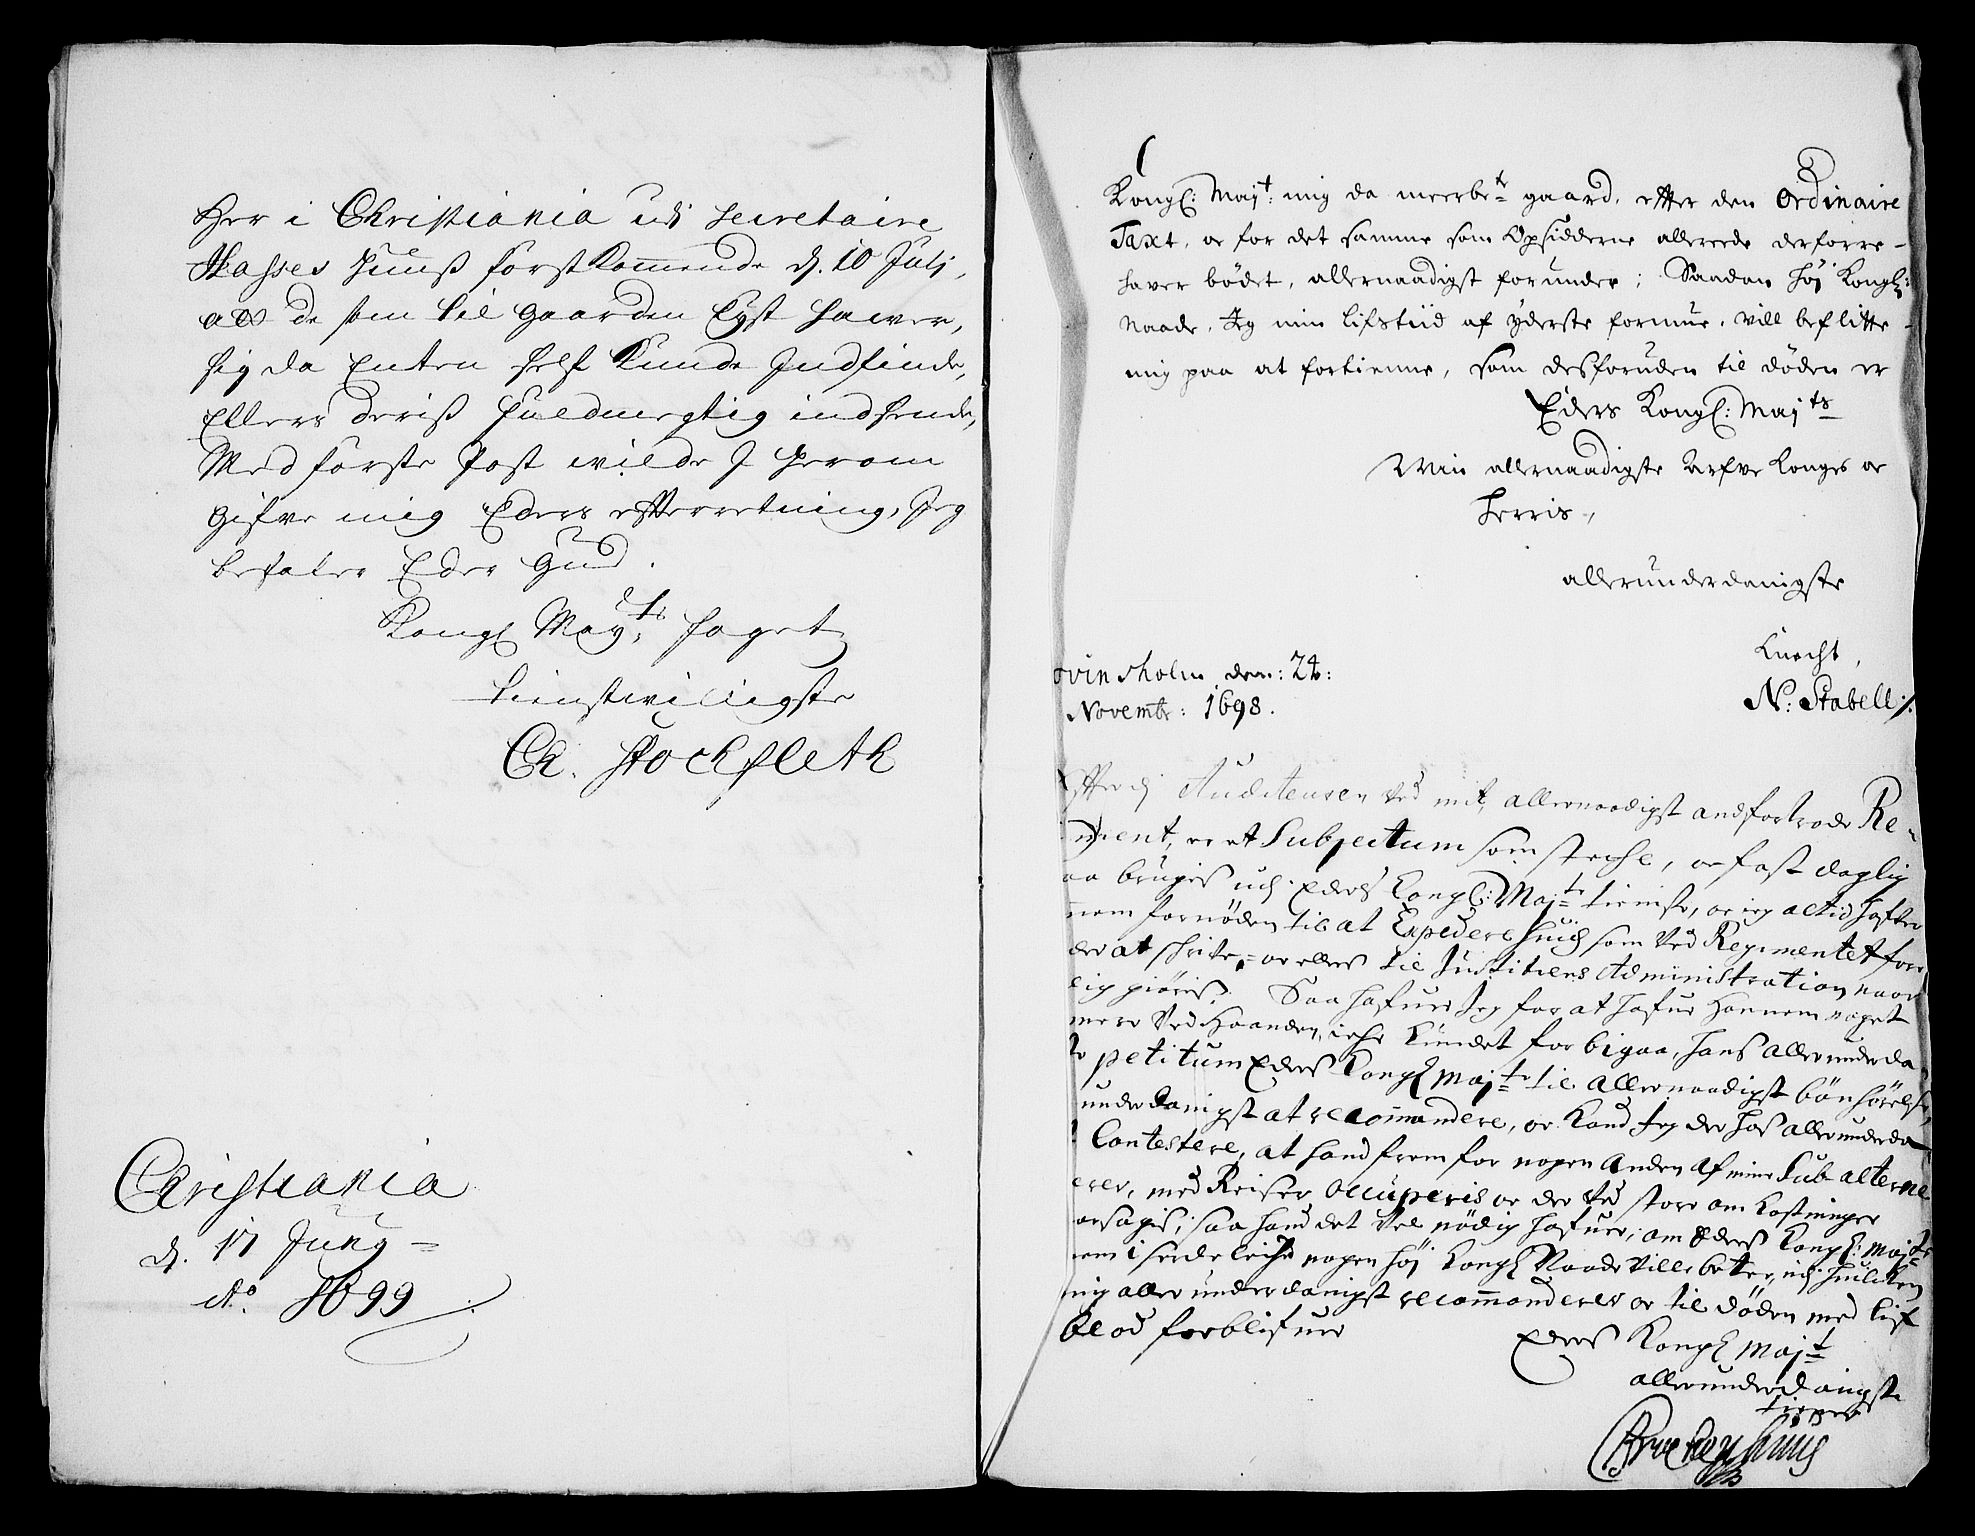 Her i Christiania udi Secretaire
Hasses Huuß förstkommende d. 10 Julj,
at de som til gaarden Lyst hawer,
sig da Enten self kunde Indfinde,
Ellers deriß fuldmegtig indsende,
Med förste Post wilde I herom
gifve mig Eders efterretning, Jeg
befaler Eder Gud.
Kongl May:ts foget
tienstwilligste
Ch. Stockfleth
Christiania
d. 17 Juny
Ao. 1699
Kongl: Maj:t mig da meerbe:te gaard, efter den Ordinaire
Taxt, oc for det samme som Opsidderne allereede derforre
haver bödet, allernaadigst forunder; Saadan höj Kongl:
Naade, Jeg min lifstiid af yderste formue, vill beflitte
mig paa at fortienne, som desforuden til döden er
Eders Kongl: Maj:ts
Min allernaadigste Arfve Konges oc
Herris,
allerunderdanigste
Knecht,
N: Stabell
ovinsholm den: 24:
Novembr: 1698.
Efterdj Auditeuren ved mit, allernaadigst anfortrode Re-
iment, er et Subjectum som steche, oc fast daglig
aa brugis udj Eders Kongl: Maj:ts tieniste, oc ieg altid hafver
nem fornöden til at Expedere huis som ved Regimentet fore
der at skrive, oc ellers til Justitiens Administration naar
lig giöris, Saa hafuer Jeg for at hafue Hannem noget
mere ved Haanden, icke kundet forbigaa, hans allerunderda
te petitum Eders Kongl Maj:ts til allernaadigst bönhörelse,
underdanigst at recommandere, oc kand Jeg der hos allerunderda
Contestere, at hand frem for nogen anden af mine Subalterne
erer, med Reiser occuperis oc der ved store omkostninger
orsagis; saa hand det vel nödig hafuer, om Eders Kongl: Maj:ts
em i serdeleshed nogen höj Kongl Naade ville betee, udj huilken
mig allerunderdanigst recommanderer oc til döden med lif
blod forblifuer
Eders Kongl Maj:ts
allerunderdanigste
tiener